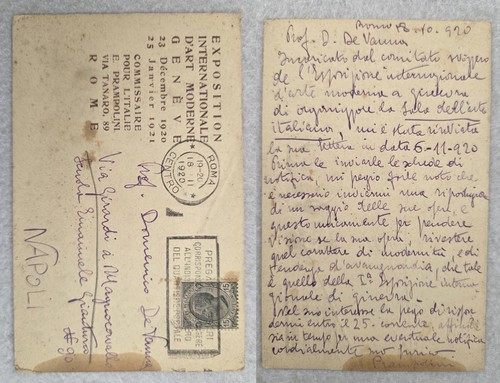 EXPOSITION
INTERNATIONALE
D'ART MODERNE
GENÈVE
23 Décembre 1920
25 Janvier 1921
COMMISSAIRE
POUR L'ITALIE
E. PRAMPOLINI
VIA TANARO, 89
ROME
ROMA
18 · 11
1920
CENTRO
Prof. Domenico De Vanna
Via Girardi a Magnocavallo
Scuola Emanuele Gianturco
NAPOLI
Prof. D. De Vanna
Incaricato dal comitato svizzero
de l'Esposizione internazionale
d'arte moderna a ginevra
di organizzare la Sala dell'arte
italiana, mi è stata rinviata
la sua lettera in data 6-11-920
Prima le inviarle le schede di
notifica, mi pregio farle noto che
è necessario inviarmi una riproduzione
di un saggio delle sue opere, e
questo unicamente per prendere
visione se la sua opera, rivestere
quel carattere di modernità, e di
tendenza d'avanguardia, che tale
è quello della Iª Esposizione interna
zionale di ginevra.
Nel suo interesse la prego di rispon
dermi entro il 25 corrente, affinché
sia in tempo per una eventuale notifica
cordialmente suo
Prampolini